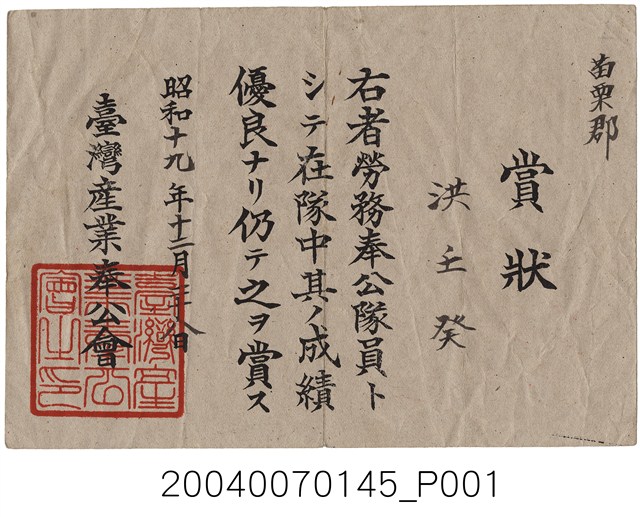 苗栗郡
賞狀
洪壬癸
右者勞務奉公隊員ト
シテ在隊中其ノ成績
優良ナリ仍テ之ヲ賞ス
昭和十九年十二月二十八日
臺灣産業奉公會
臺灣産業奉公會之印
20040070145_P001